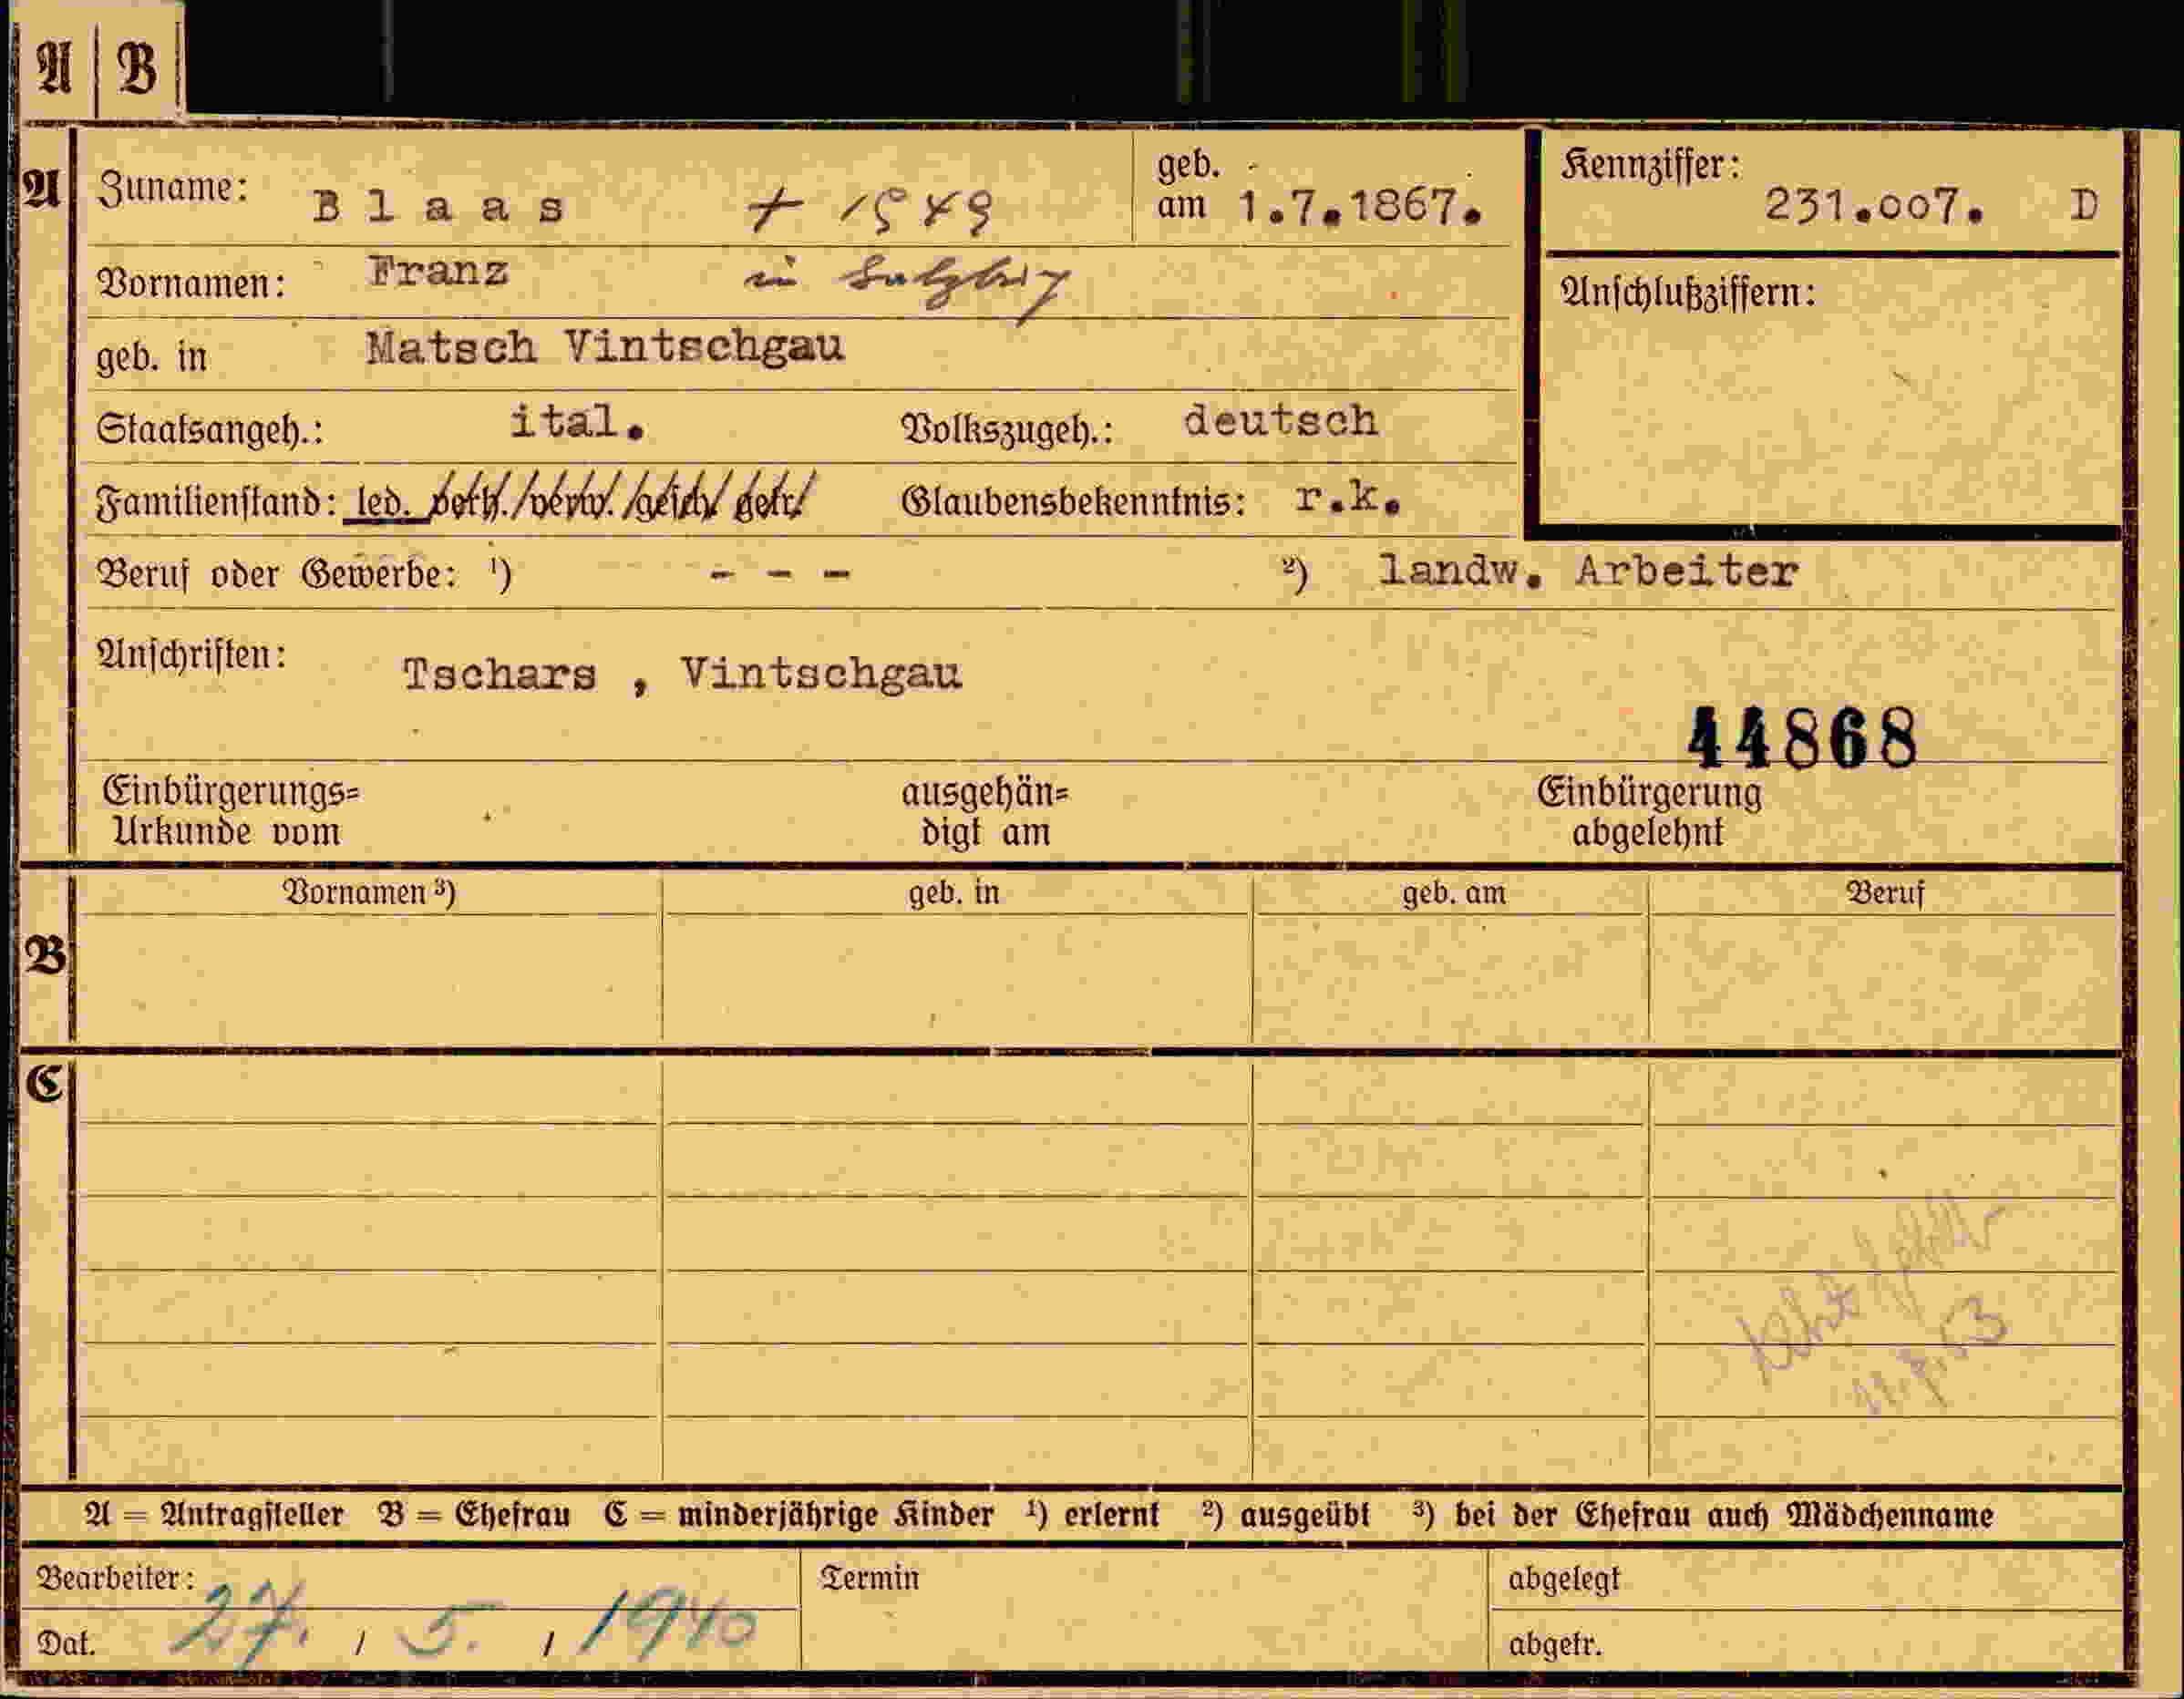 A B
A Zuname: Blaas + 1949 geb. am 1.7.1867. Kennziffer: 231.007. D
Vornamen: Franz in Salzburg Anschlußziffern:
geb. in Matsch Vintschgau
Staatsangeh.: ital. Volkszugeh.: deutsch
Familienstand: led. verh./verw./gesch/ getr/ Glaubensbekenntnis: r.k.
Beruf oder Gewerbe: ¹) - - - ²) landw. Arbeiter
Anschriften: Tschars , Vintschgau
44868
Einbürgerungs= ausgehän= Einbürgerung
Urkunde vom digt am abgelehnt
Vornamen ³) geb. in geb. am Beruf
B
C
11.9.53
A = Antragsteller B = Ehefrau C = minderjährige Kinder ¹) erlernt ²) ausgeübt ³) bei der Ehefrau auch Mädchenname
Bearbeiter: Termin abgelegt
Dat. 27. / 5. / 1940 abgetr.